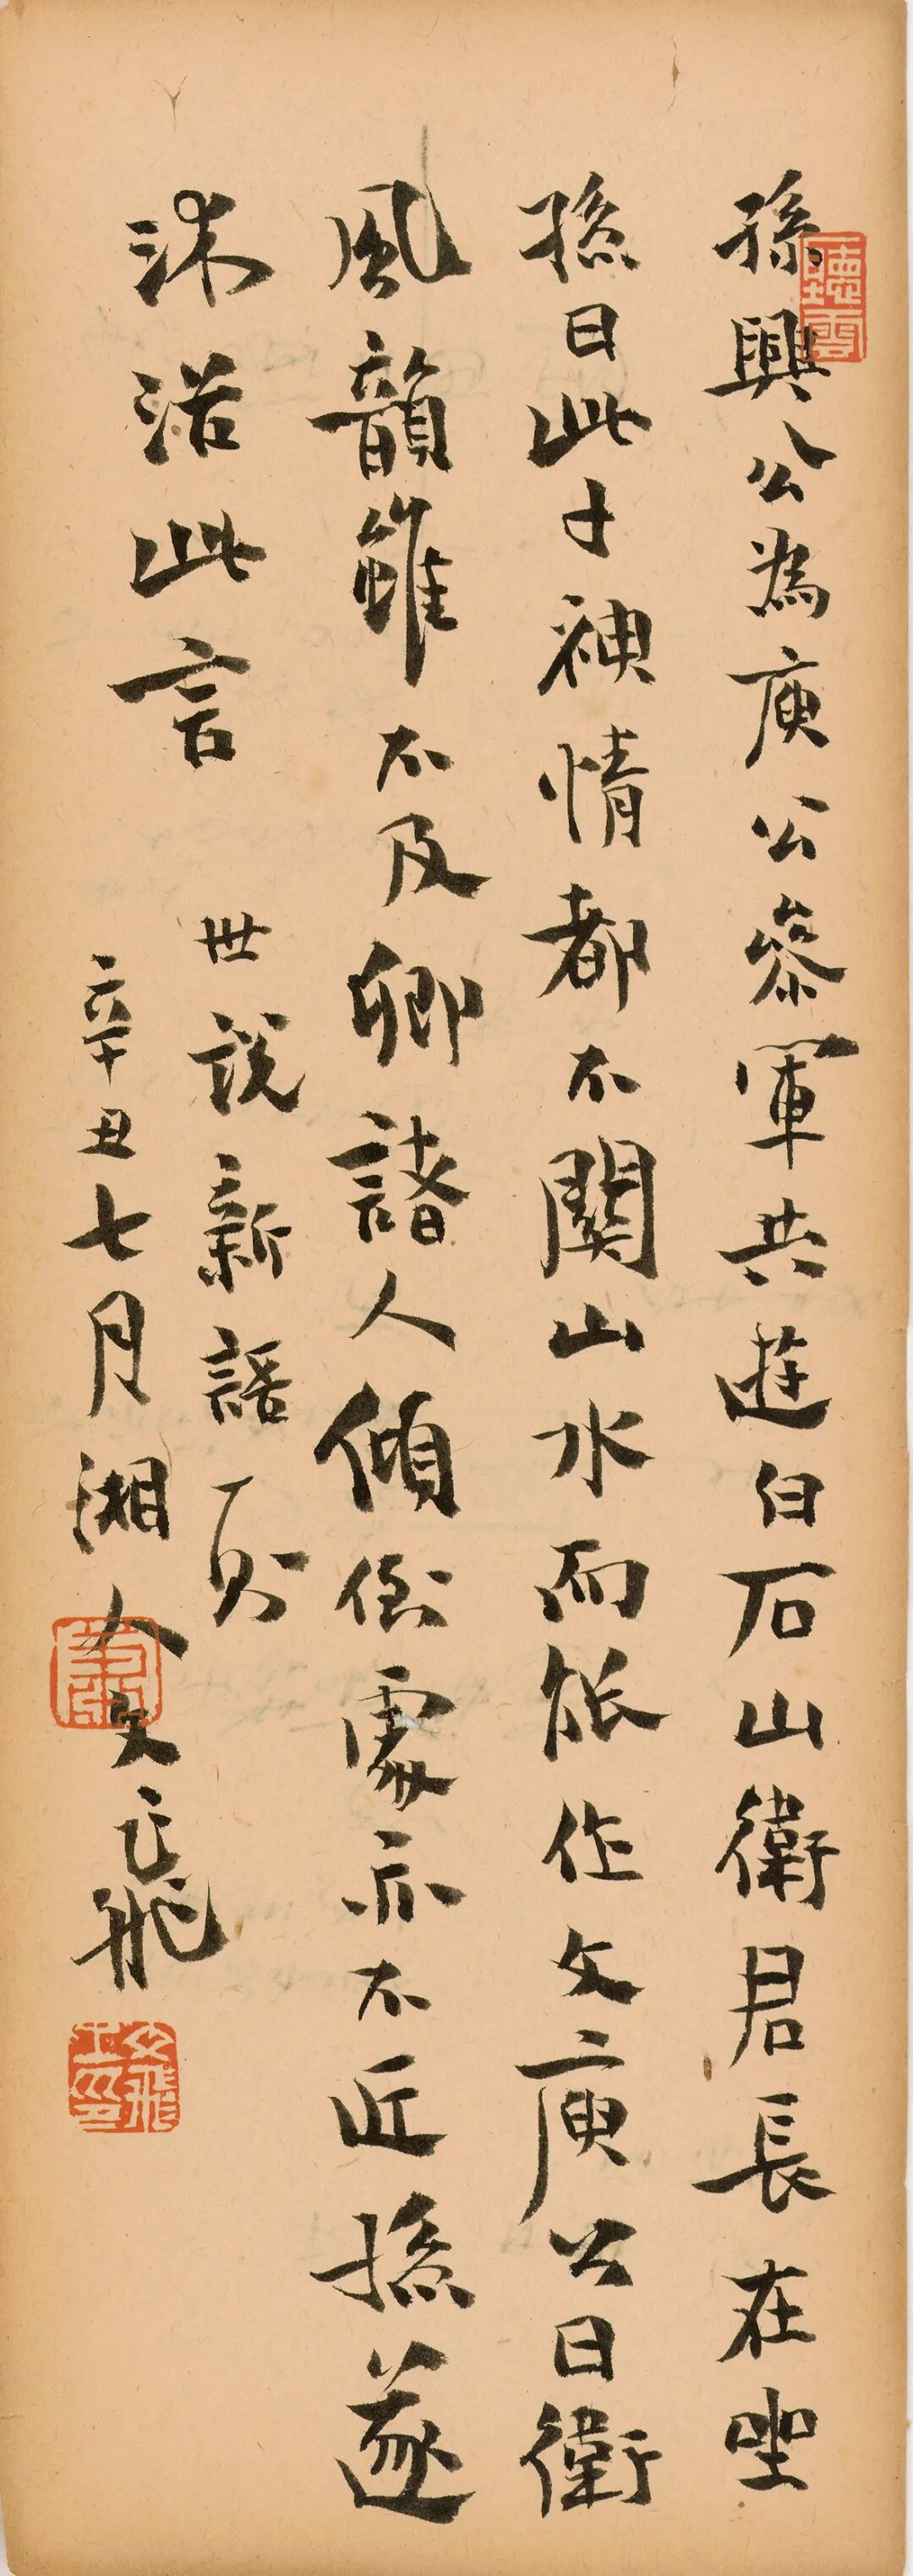 孫興公為庾公參軍共遊白石山衛君長在坐
孫曰此子神情都不關山水而能作文庾公曰衛
風韻雖不及卿諸人傾倒處亦不近孫遂
沐浴此言
世說新語一則
辛丑七月湘人文正飛
聽雲